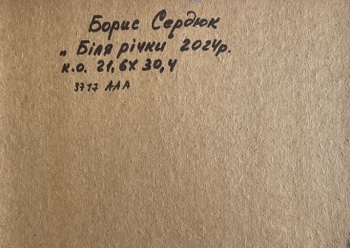 Борис Сердюк
„ Біля річки" 2024р.
к.о. 21,6х30,4
3717 ААА